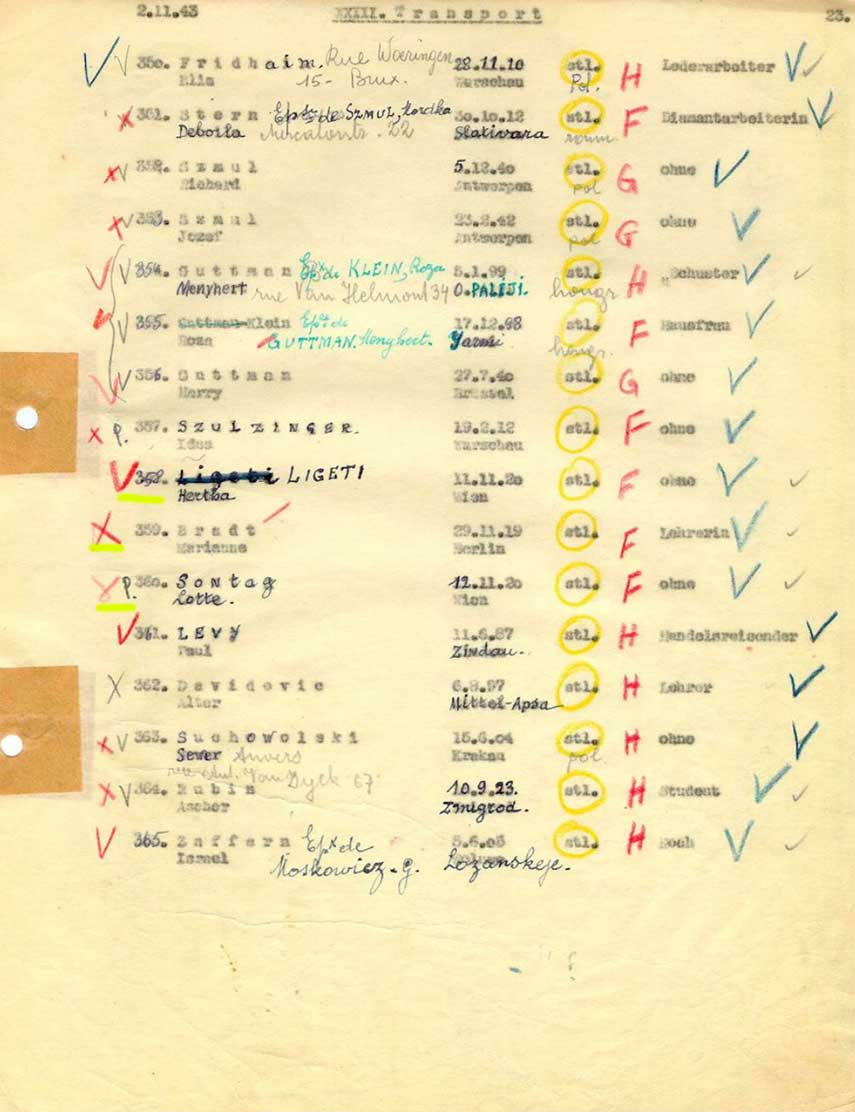 2.11.43 XXIII. Transport 23.
350. Fridhaim. Rue Woeringen 28.11.10 stl. H Lederarbeiter
Elia 15 - Brux. Warschau Pol.
351. Stern Epse de SZMUL, Mordka 30.10.12 stl. F Diamantarbeiterin
22 Slativara roum.
352. Szmul 5.12.40 stl. G ohne
Richard Antwerpen pol
353. Szmul 23.2.42 stl. G ohne
Jozef Antwerpen pol
354. Guttman Epx de KLEIN, Roza 5.1.99 stl. H Schuster
Menyhert rue Van Helmont 34 O.PALEJI. hongr
355. Guttman-Klein Epse de 17.12.98 stl. F Hausfrau
Roza GUTTMAN. Menyhert. Yarmi hongr.
356. Guttman 27.7.40 stl. G ohne
Harry Brüssel
P. 357. SZULZINGER. 19.2.12 stl. F ohne
Idea Warschau
358. Ligeti LIGETI 11.11.20 stl. F ohne
Hertha Wien
359. Bradt 29.11.19 stl. F Lehrerin
Marianne Berlin
P. 360. Sontag 12.11.20 stl. F ohne
Lotte. Wien
361. LEVY 11.6.87 stl. H Handelsreisender
Paul Zindau.
362. Davidovic 6.8.97 stl. H Lehrer
Alter Mittel-Apsa
363. Suchowolski 15.6.04 stl. H ohne
Sewer Anvers Krakau pol.
rue Ant. Van Dyck 67
364. Rubin 10.9.23. stl. H Student
Ascher Zmigrod.
365. Zaffern Epx de 5.6.05 stl. H Koch
Israel Moskowicz. g. Lozanskeje.